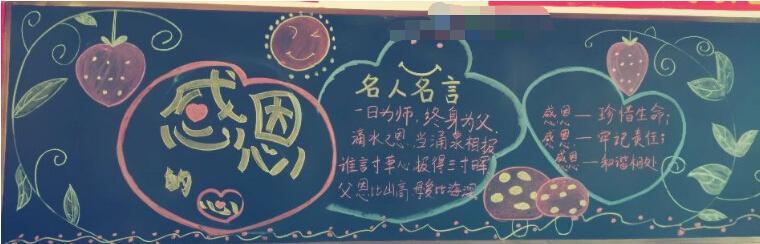 感恩
的心
名人名言
一日为师,终身为父.
滴水之恩,当涌泉相报
谁言寸草心 报得三寸晖
父恩比山高 母爱比海深
感恩—珍惜生命;
感恩—牢记责任;
感恩—和谐相处